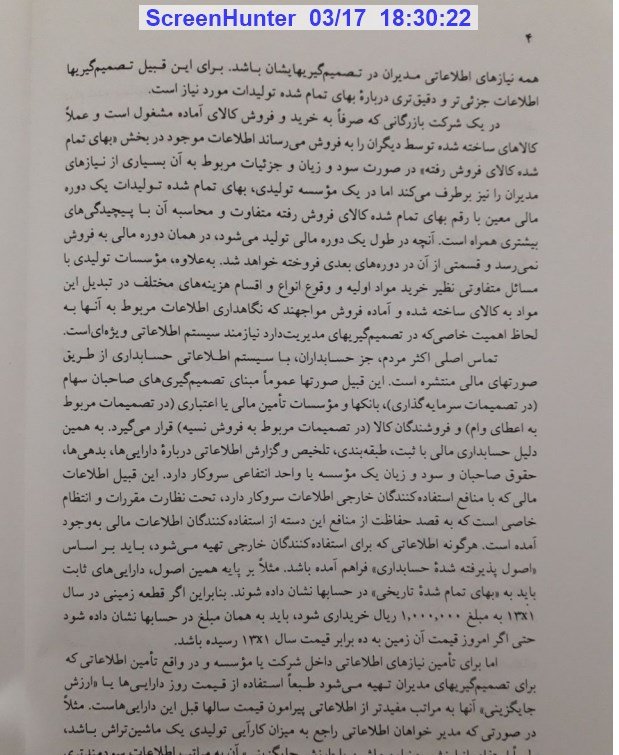 ScreenHunter 03/17 18:30:22
۴
همه نیازهای اطلاعاتی مدیران در تصمیم‌گیریهایشان باشد. برای این قبیل تصمیم‌گیریها
اطلاعات جزئی‌تر و دقیق‌تری دربارهٔ بهای تمام شده تولیدات مورد نیاز است.
در یک شرکت بازرگانی که صرفاً به خرید و فروش کالای آماده مشغول است و عملاً
کالاهای ساخته شده توسط دیگران را به فروش می‌رساند اطلاعات موجود در بخش «بهای تمام
شده کالای فروش رفته» در صورت سود و زیان و جزئیات مربوط به آن بسیاری از نیازهای
مدیران را نیز برطرف می‌کند اما در یک مؤسسه تولیدی، بهای تمام شده تولیدات یک دوره
مالی معین با رقم بهای تمام شده کالای فروش رفته متفاوت و محاسبه آن با پیچیدگی‌های
بیشتری همراه است. آنچه در طول یک دوره مالی تولید می‌شود، در همان دوره مالی به فروش
نمی‌رسد و قسمتی از آن در دوره‌های بعدی فروخته خواهد شد. به‌علاوه، مؤسسات تولیدی با
مسائل متفاوتی نظیر خرید مواد اولیه و وقوع انواع و اقسام هزینه‌های مختلف در تبدیل این
مواد به کالای ساخته شده و آماده فروش مواجهند که نگاهداری اطلاعات مربوط به آنها به
لحاظ اهمیت خاصی‌که در تصمیم‌گیریهای مدیریت‌دارد نیازمند سیستم اطلاعاتی ویژه‌ای‌است.
تماس اصلی اکثر مردم، جز حسابداران، با سیستم اطلاعاتی حسابداری از طریق
صورتهای مالی منتشره است. این قبیل صورتها عموماً مبنای تصمیم‌گیری‌های صاحبان سهام
(در تصمیمات سرمایه‌گذاری)، بانکها و مؤسسات تأمین مالی یا اعتباری (در تصمیمات مربوط
به اعطای وام) و فروشندگان کالا (در تصمیمات مربوط به فروش نسیه) قرار می‌گیرد. به همین
دلیل حسابداری مالی با ثبت، طبقه‌بندی، تلخیص وگزارش اطلاعاتی دربارهٔ دارایی‌ها، بدهی‌ها،
حقوق صاحبان و سود و زیان یک مؤسسه یا واحد انتفاعی سروکار دارد. این قبیل اطلاعات
مالی که با منافع استفاده‌کنندگان خارجی اطلاعات سروکار دارد، تحت نظارت مقررات و انتظام
خاصی است که به قصد حفاظت از منافع این دسته از استفاده‌کنندگان اطلاعات مالی به‌وجود
آمده است. هرگونه اطلاعاتی که برای استفاده‌کنندگان خارجی تهیه می‌شود، باید بر اساس
«اصول پذیرفته شدهٔ حسابداری» فراهم آمده باشد. مثلاً بر پایه همین اصول، دارایی‌های ثابت
باید به «بهای تمام شدهٔ تاریخی» در حسابها نشان داده شوند. بنابراین اگر قطعه زمینی در سال
۱۳×۱ به مبلغ ۱,۰۰۰,۰۰۰ ریال خریداری شود، باید به همان مبلغ در حسابها نشان داده شود
حتی اگر امروز قیمت آن زمین به ده برابر قیمت سال ۱۳×۱ رسیده باشد.
اما برای تأمین نیازهای اطلاعاتی داخل شرکت یا مؤسسه و در واقع تأمین اطلاعاتی که
برای تصمیم‌گیریهای مدیران تهیه می‌شود طبعاً استفاده از قیمت روز دارایی‌ها یا «ارزش
جایگزینی» آنها به مراتب مفیدتر از اطلاعاتی پیرامون قیمت سالها قبل این دارایی‌هاست. مثلاً
در صورتی که مدیر خواهان اطلاعاتی راجع به میزان کارآیی تولیدی یک ماشین‌تراش باشد،